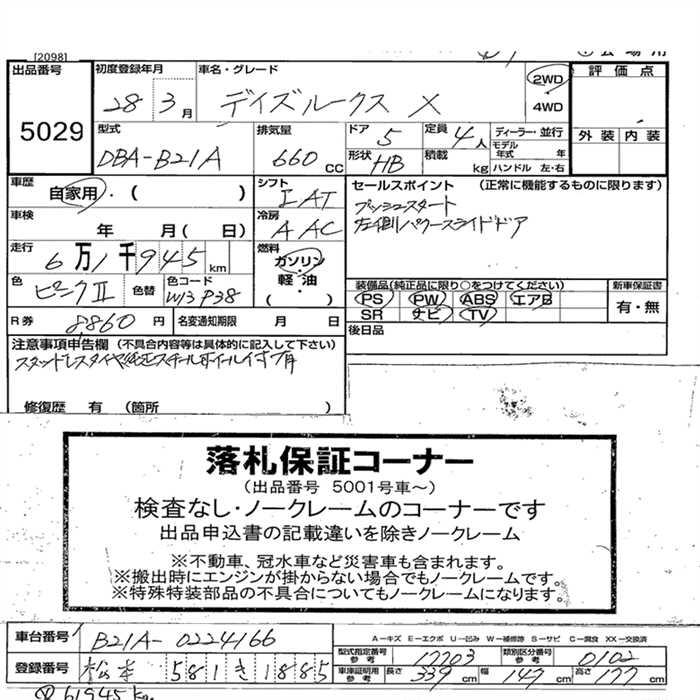 [2098]
出品番号 5029
初度登録年月 28 3月
車名・グレード デイズルークス X
2WD
4WD
評価点
外装 内装
型式 DBA-B21A
排気量 660cc
ドア 5
定員 4人
ディーラー・並行
モデル年式 年
形状 HB
積載 kg
ハンドル 左・右
車歴 自家用・( )
シフト IAT
セールスポイント (正常に機能するものに限ります)
プッシュスタート
左側パワースライドドア
車検 年 月( 日)
冷房 AAC
走行 6万1千945km
燃料 ガソリン・軽油・( )
色 ピンクII
色替
色コード W13 P38
装備品(純正品に限り○をつけてください)
PS PW ABS エアB
SR ナビ TV
新車保証書
有・無
R券 8,860円
名変通知期限 月 日
後日品
注意事項申告欄 (不具合内容等は具体的に記入して下さい)
スタッドレスタイヤ純正スチールホイール付
修復歴 有 (箇所 )
落札保証コーナー
(出品番号 5001号車~)
検査なし・ノークレームのコーナーです
出品申込書の記載違いを除きノークレーム
※不動車、冠水車など災害車も含まれます。
※搬出時にエンジンが掛からない場合でもノークレームです。
※特殊特装部品の不具合についてもノークレームになります。
車台番号 B21A-0224166
A-キズ E-エクボ U-凹み W-補修跡 S-サビ C-腐食 XX-交換済
型式指定番号 参考 17703
類別区分番号 参考 0102
登録番号 松本 581 き 1885
車庫証明用 参考 長さ 339cm 幅 147cm 高さ 177cm
61945km